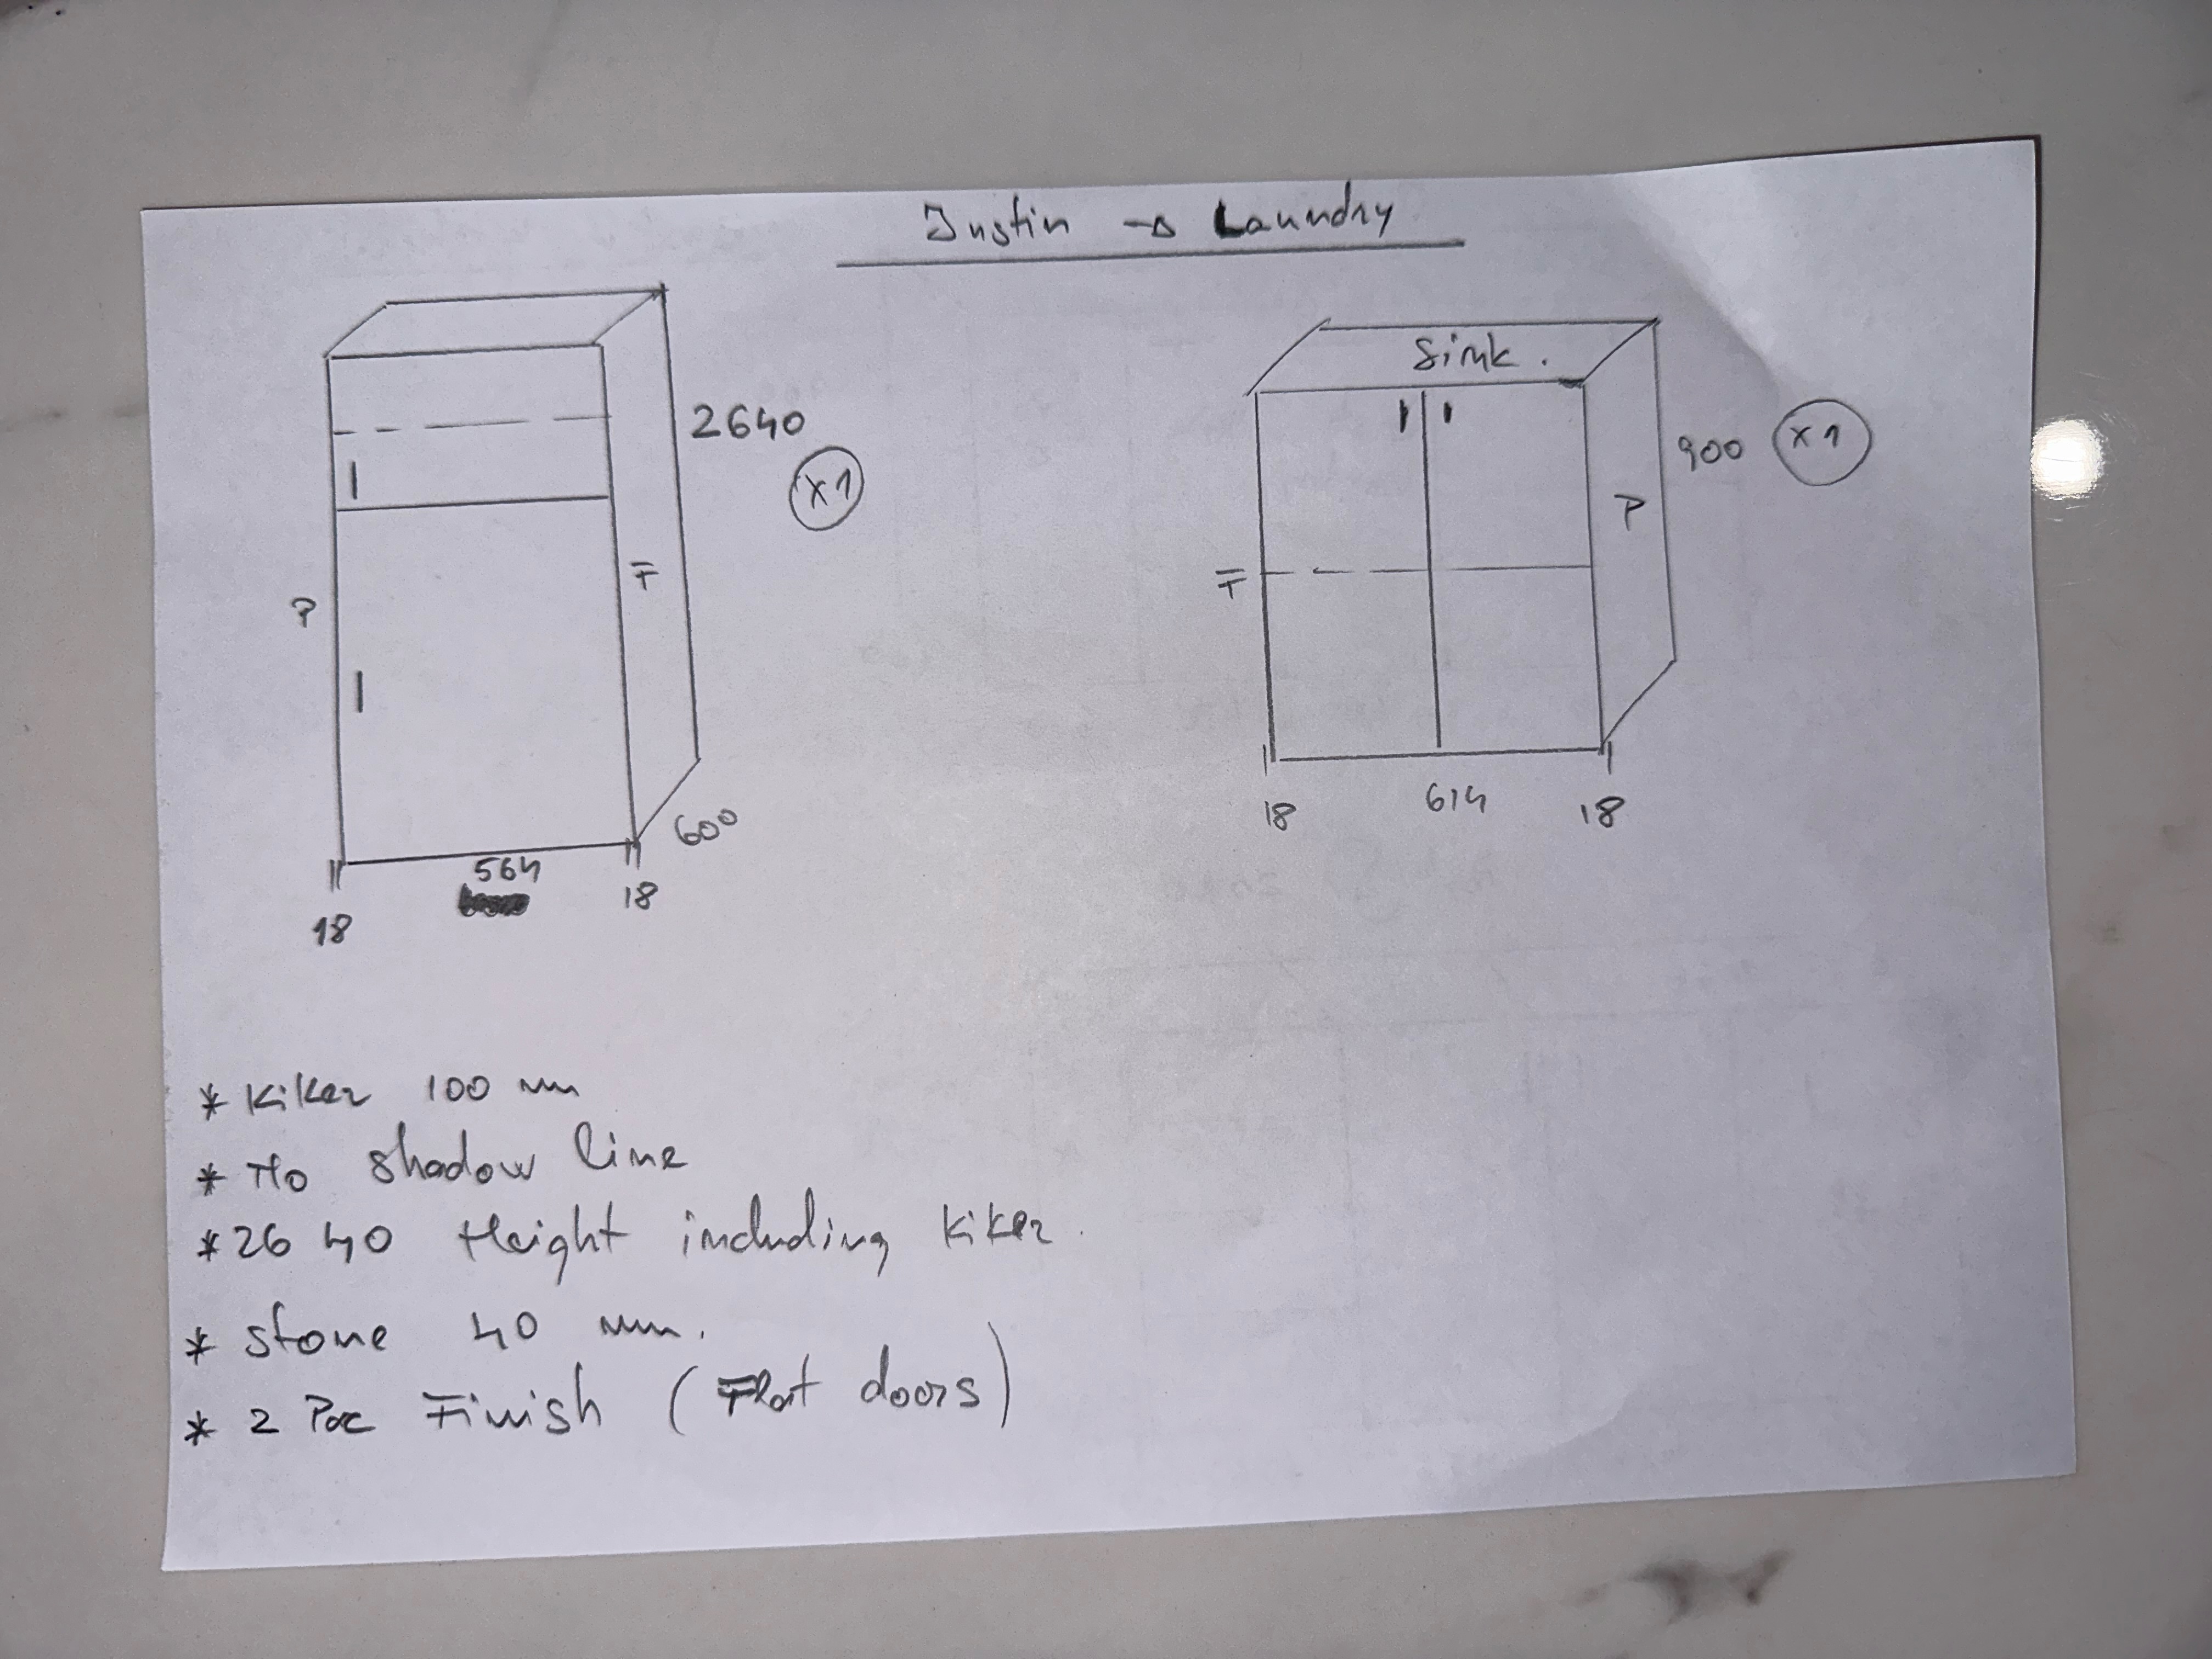 Justin → Laundry
2640
x1
P
F
564
600
18
18
Sink.
900
x1
P
F
18
614
18
* Kiker 100 mm
* No shadow line
* 2640 Height including Kiker.
* Stone 40 mm.
* 2 Pac Finish (Flat doors)